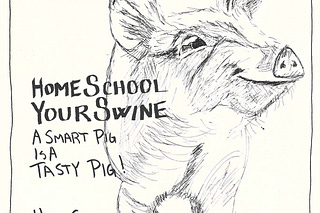 HOMESCHOOL
YOUR SWINE
A SMART PIG
IS A
TASTY PIG!